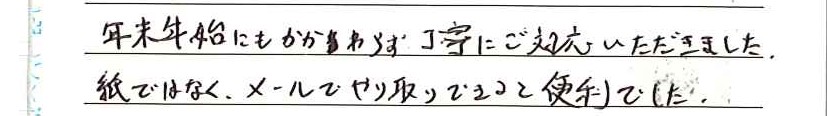 年末年始にもかかわらず丁寧にご対応いただきました.
紙ではなく、メールでやり取りできると便利でした.